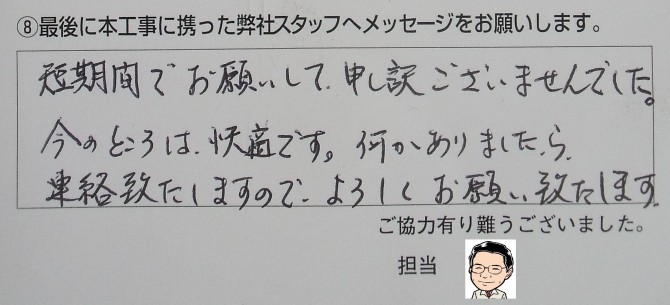 ⑧最後に本工事に携った弊社スタッフへメッセージをお願いします。
短期間でお願いして、申し訳ございませんでした。
今のところは、快適です。何かありましたら、
連絡致たしますので、よろしくお願い致たします。
ご協力有り難うございました。
担当